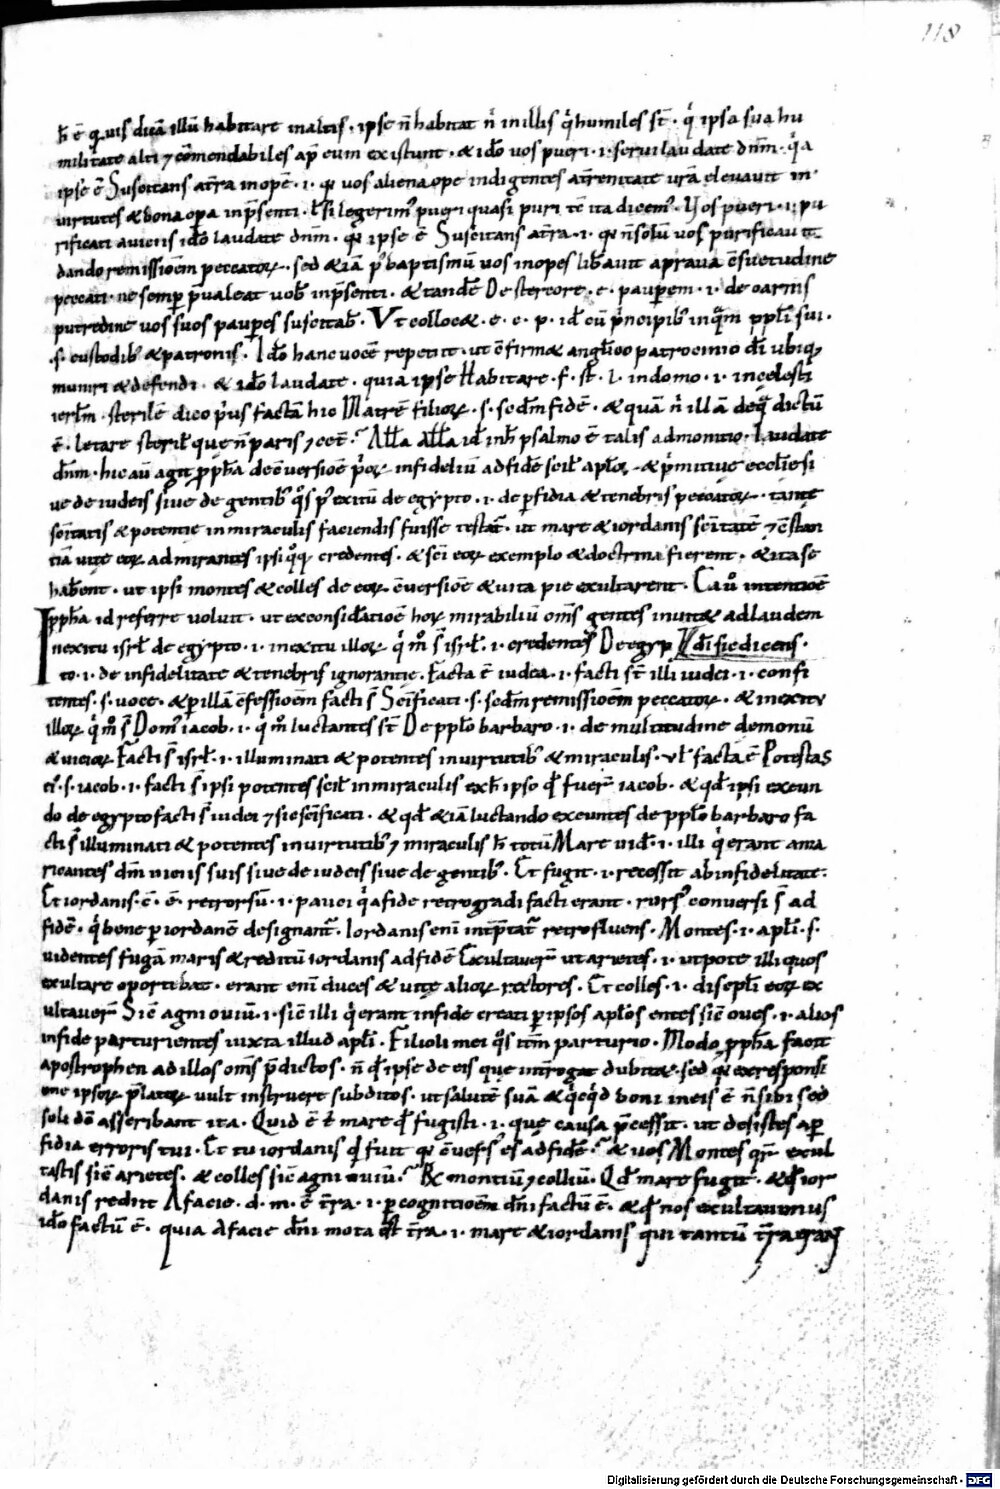 118
h̄ ē quis dicā illū habitare in altis · ipse n̄ habitat n̄ in illis q̇ humiles st̄ · q̇ ipsa sua hu
militate alti ⁊ cōmendabiles ap̄ eum existunt · & id̄o vos pueri · i · servi laudate dn̄m · q̇a
ipse ē Suscitans at̄ra inopē · i · qꝛ vos aliena ope indigentes at̄renitate urā elevavit in
virtutes & bona oꝑa in p̄senti · t̄ si legerimꝰ pueri quasi puri tē ita dicemꝰ · Vos pueri · i · pu
rificati a viciis id̄o laudate dn̄m · qꝛ ipse ē Suscitans at̄ra · i · qꝛ n̄ solū vos purificavit
dando remissionē peccatoꝝ · sed & iā ꝑ baptismū vos inopes lib̄avit a prava c̄suetudine
peccati · ne semꝑ p̄valeat vob̄ in p̄senti · & tandē De stercore · e · pauꝑem · i · de carnis
putredine vos suos pauꝑes suscitab̄ · Vt colloc& · e · c · p · id̄ cū p̄ncipibꝰ inq̄m ppl̄i sui ·
· s · custodibꝰ & patronis · Id̄o hanc vocē repetit · ut c̄firm& anglico patrocinio dī ubiqꝫ
muniri & defendi · & id̄o laudate · quia ipse Habitare · f · st̄ · i · in domo · i · in celesti
ierl̄m · sterilē dico p̄us factā hic Matrē filioꝝ · s · scd̄m fidē · & quā n̄ illā de q̄ dictū
ē · letare steril̄ que n̄ paris ⁊ cet̄ · All̄a all̄a id̄ in h̄ psalmo ē talis admonitio · laudate
dn̄m · hic aū agit p̄ph̄a de c̄versionē p̄oꝝ infideliū ad fidē scil̄ apl̄oꝝ · & p̄mitive ecclīe si
ve de iudeis sive de gentibꝰ q̊s ꝑ exitū de egypto · i · de ꝑfidia & tenebris peccatoꝝ · tante
sc̄itatis & potentie in miraculis faciendis fuisse testat̄ · ut mare & iordanis sc̄itatē ⁊ c̄stan
tiā vite eoꝝ admirantes ipsi q̊qꝫ credentes · & sc̄i eoꝝ exemplo & doctrina fierent · & ita se
hab̄ent · ut ipsi montes & colles de eoꝝ c̄versionē & vita pie exultarent · Cau̇ intentionē
p̄ph̄a id referre voluit · ut ex considatione hoꝝ mirabiliū oms̄ gentes invit& ad laudem
In exitu isrl̄ de egypto · i · in exitu illoꝝ q̇ m̊ s̄ isrl̄ · i · credentes De egyp dī sic dicens ·
to · i · de infidelitate & tenebris ignorantie · Facta ē iudea · i · facti st̄ illi iudei · i · confi
tentes · s · voce · & ꝑ illā c̄fessionē facti s̄ Sc̄ificati · s · scd̄m remissionē peccatoꝝ · & in exitv
illoꝝ q̇ m̊ s̄ Domꝰ iacob · i · q̇ m̊ luctantes st̄ De ppl̄o barbaro · i · de multitudine demonū
& vicioꝝ · Facti s̄ isrl̄ · i · illuminati & potentes in virtutibꝰ & miraculis · vl̄ facta ē Potestas
eiꝰ · s · iacob · i · facti s̄ ipsi potentes scil̄ in miraculis ex h̄ ipso qd̄ fuer̄ iacob · & qd̄ ipsi exeun
do de egypto facti s̄ iudei ⁊ sic sc̄ificati · & qd̄ & iā luctando exeuntes de ppl̄o barbaro fa
cti s̄ illuminati & potentes in virtutibꝰ ⁊ miraculis h̄ totū Mare vid̄ · i · illi q̇ erant ama
ricantes dm̄ viciis suis sive de iudeis sive de gentibꝰ · Et fugit · i · recessit ab infidelitate ·
Et iordanis · c̄ · ē · retrorsū · i · pauci q̇ a fide retrogradi facti erant · rursꝰ conversi s̄ ad
fidē · q̇ bene ꝑ iordanē designant̄ · Iordanis enī int̄p̄tat̄ retrofluens · Montes · i · apl̄i · s ·
videntes fugā maris & reditū iordanis ad fidē Exultaver̄ ut arietes · i · utpote illi quos
exultare oportebat · erant enī duces & vite alioꝝ rectores · Et colles · i · discipl̄i eoꝝ ex
ultaver̄ Sic̄ agni oviū · i · sic̄ illi q̇ erant in fide creati ꝑ ipsos apl̄os entes sic̄ oves · i · alios
in fide parturientes iuxta illud apl̄i · Filioli mei q̊s itm̄ parturio · Modo p̄ph̄a facit
apostrophen ad illos oms̄ p̄dictos · n̄ qd̄ ipse de eis que int̄rogat dubit& · sed qꝛ ex responsi
one ipsoꝝ p̄latoꝝ vult instruere subditos · ut salutē suā & q̇cq̇d boni in eis ē n̄ sibi sed
soli dō asscribant ita · Quid ē t̄ mare qd̄ fugisti · i · que causa p̄cessit · ut desistes a ꝑ
fidia erroris tui · Et tu iordanis qd̄ fuit qꝛ c̄versꝰ es ad fidē · & vos Montes qr̄ exul
tastis sic̄ arietes · & colles sic̄ agni oviū · R̄ montiū ⁊ colliū · Qd̄ mare fugit · & qd̄ ior
danis rediit A facie · d · m · ē t̄ra · i · ꝑ cognitionē dn̄i factū ē · & qd̄ nos exultavimus
id̄o factū ē · quia A facie dn̄i mota est t̄ra · i · mare & iordanis qui tantū
Digitalisierung gefördert durch die Deutsche Forschungsgemeinschaft - DFG